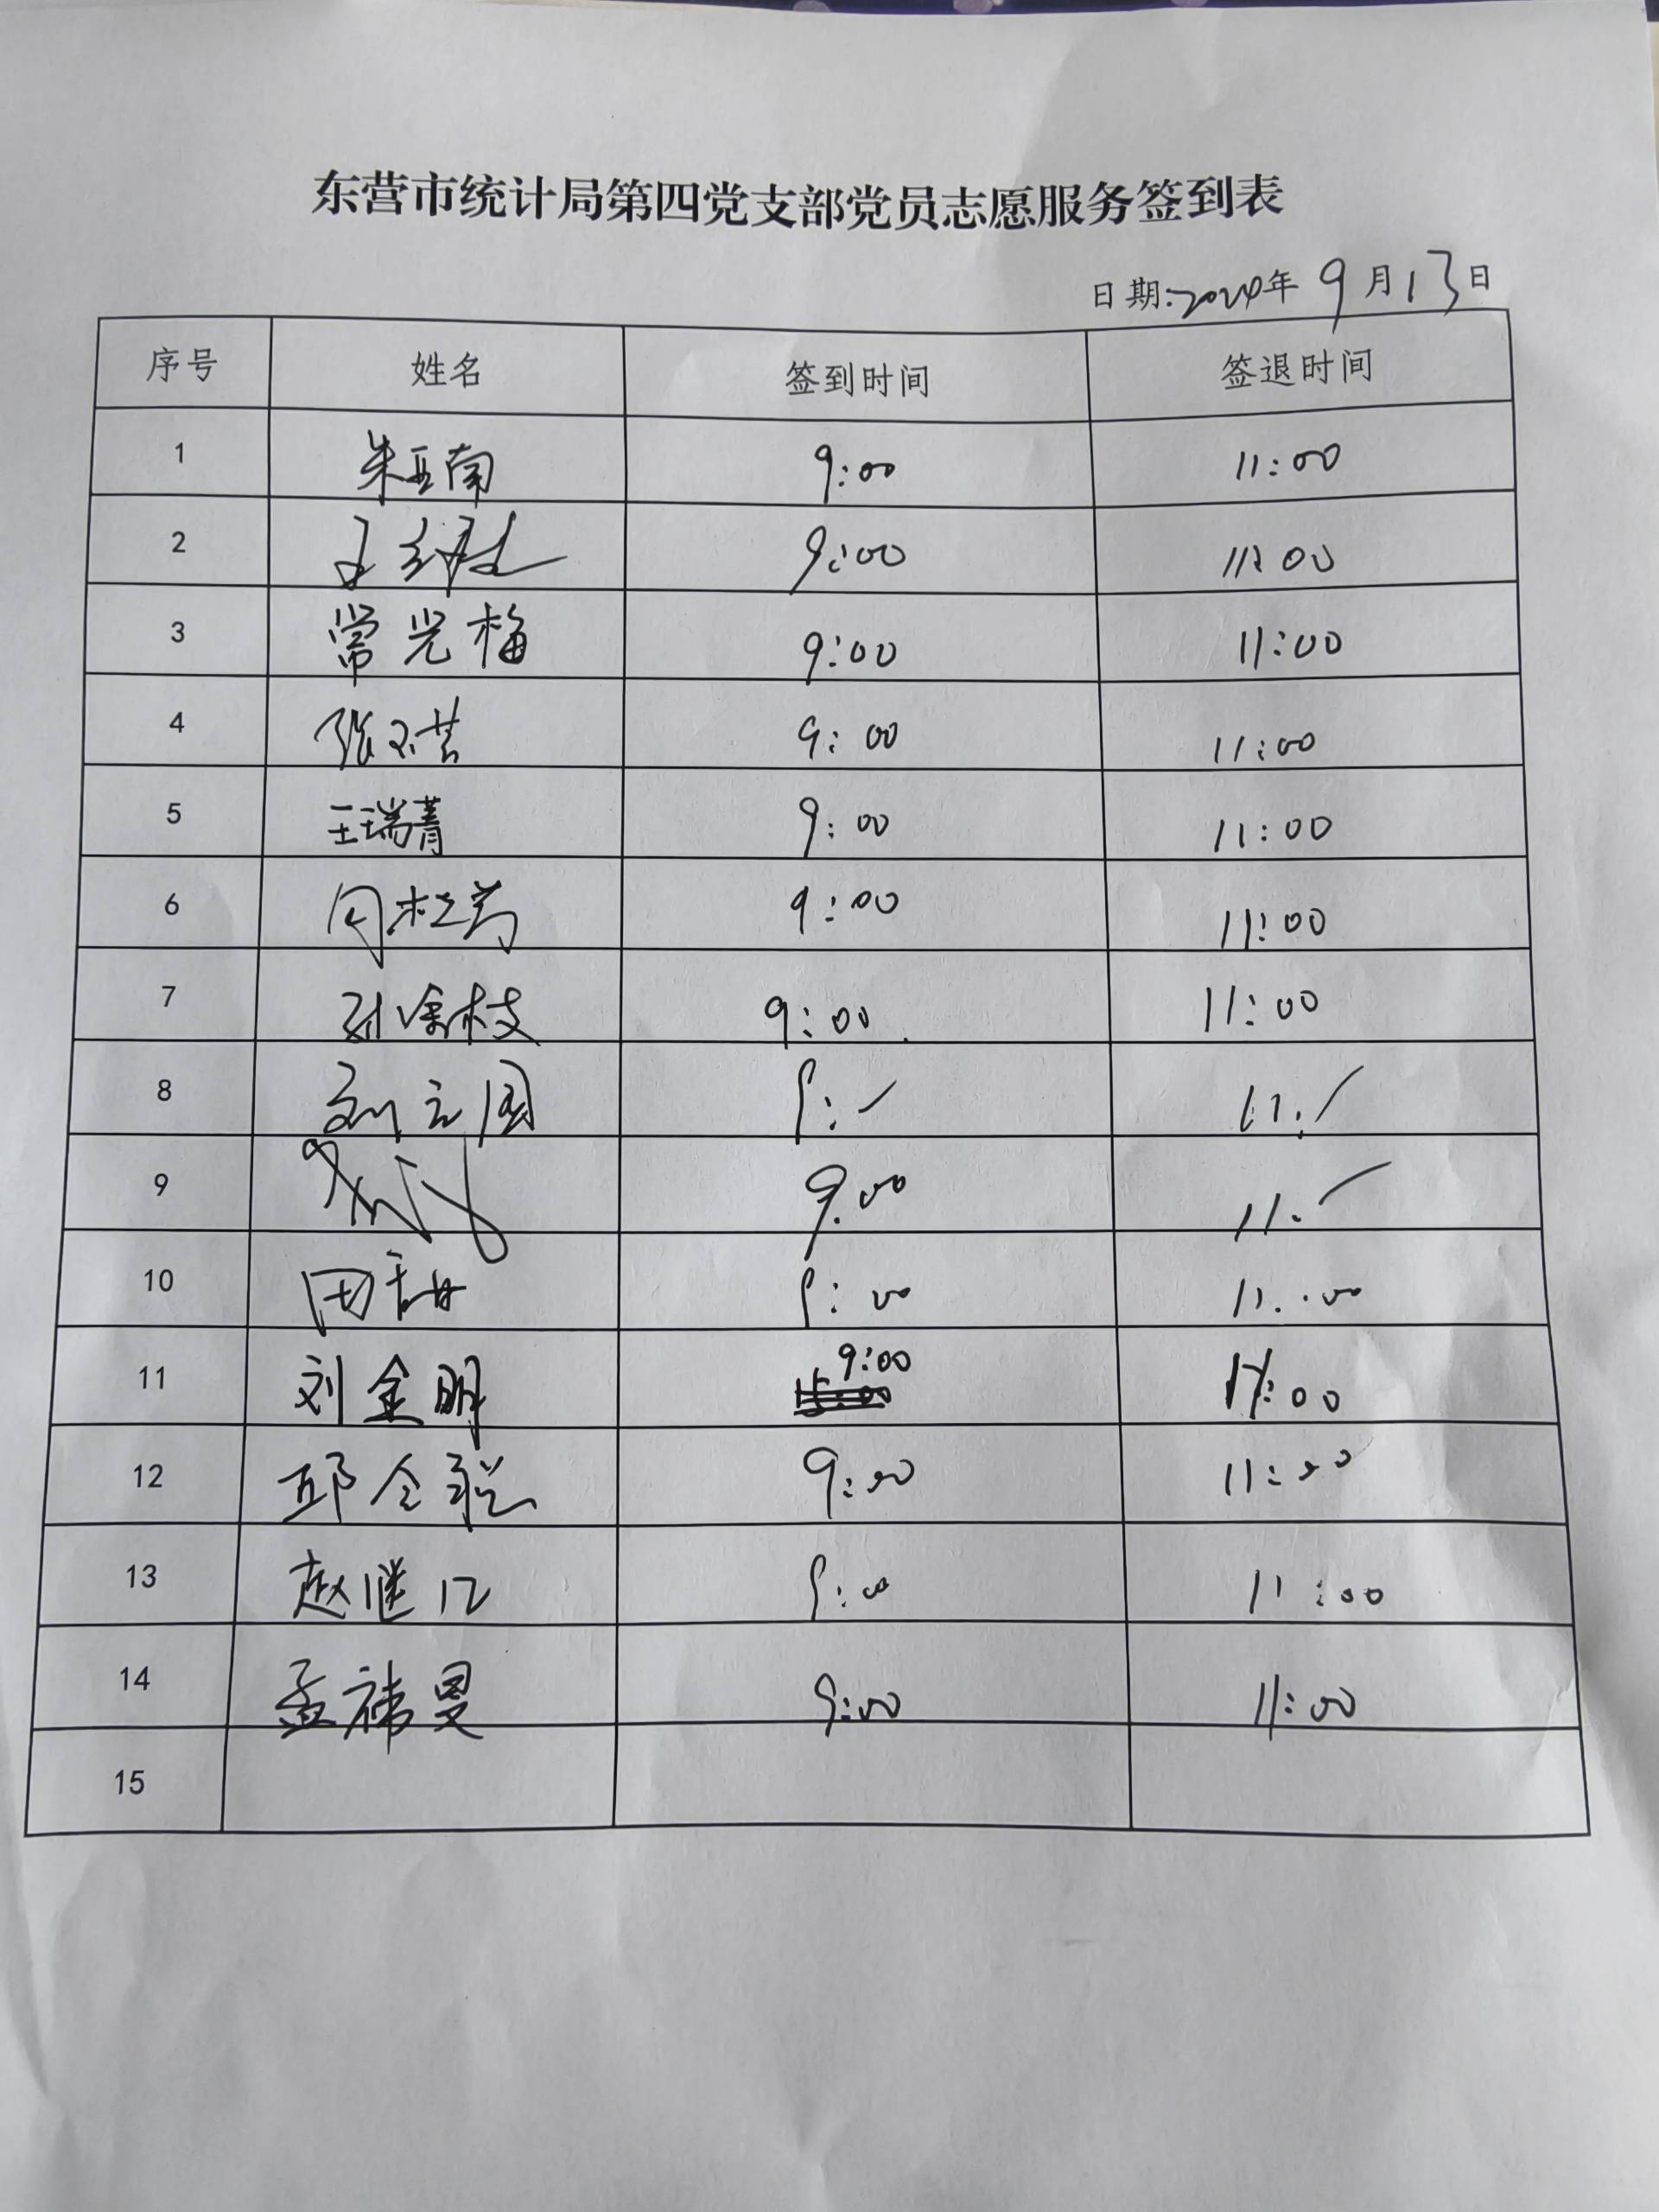 东营市统计局第四党支部党员志愿服务签到表
日期:2024年9月13日
序号 姓名 签到时间 签退时间
1 朱亚南 9:00 11:00
2 王 9:00 11:00
3 常光梅 9:00 11:00
4 张 9:00 11:00
5 王瑞菁 9:00 11:00
6 周松芳 9:00 11:00
7 孙 枝 9:00 11:00
8 刘立国 9: 11:
9 9.00 11.
10 田甜 9:00 11:00
11 刘金明 9:00 15:00 11:00
12 邱令聪 9:00 11:00
13 赵继江 9:00 11:00
14 孟祎旻 9:00 11:00
15